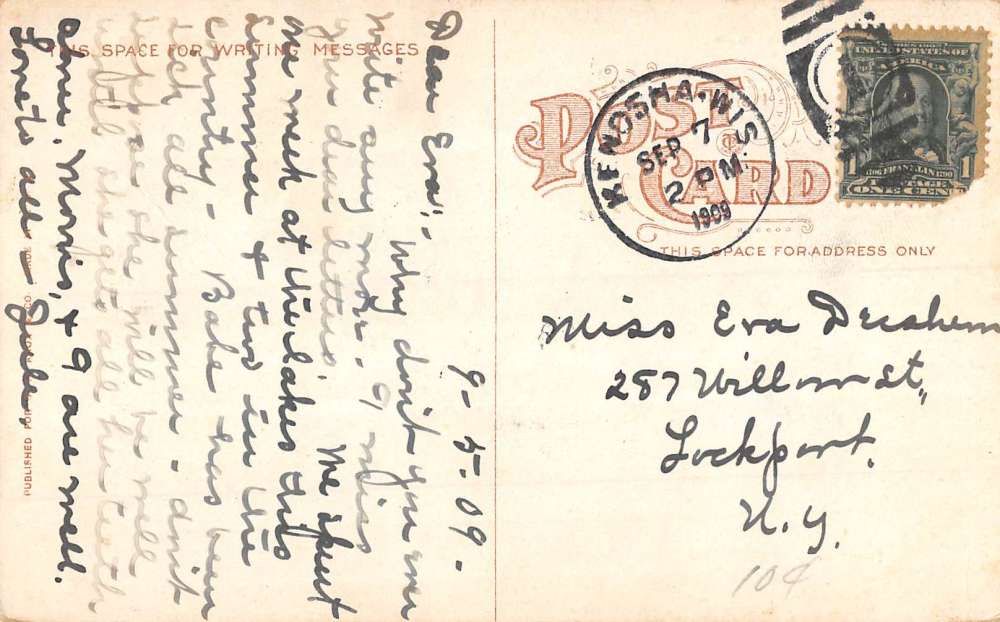 THIS SPACE FOR WRITING MESSAGES
9-5-09-
Dear Eva:-
Why don't you ever
write any more. I miss
your dear letters. We spent
one week at the lakes this
summer & two in the
country. Babe has been
sick all summer. don't
suppose she will be well
until she gets all her teeth
Alma, Morris, & I are well.
Love to all
PUBLISHED FOR
POST CARD
THIS SPACE FOR ADDRESS ONLY
KENOSHA, WIS
SEP 7
2 PM.
1909
SERIES 1902
UNITED STATES OF
AMERICA
1 1
1706 FRANKLIN 1790
POSTAGE
ONE CENT
Miss Eva
287 Willow St.,
Lockport,
N.Y.
10¢